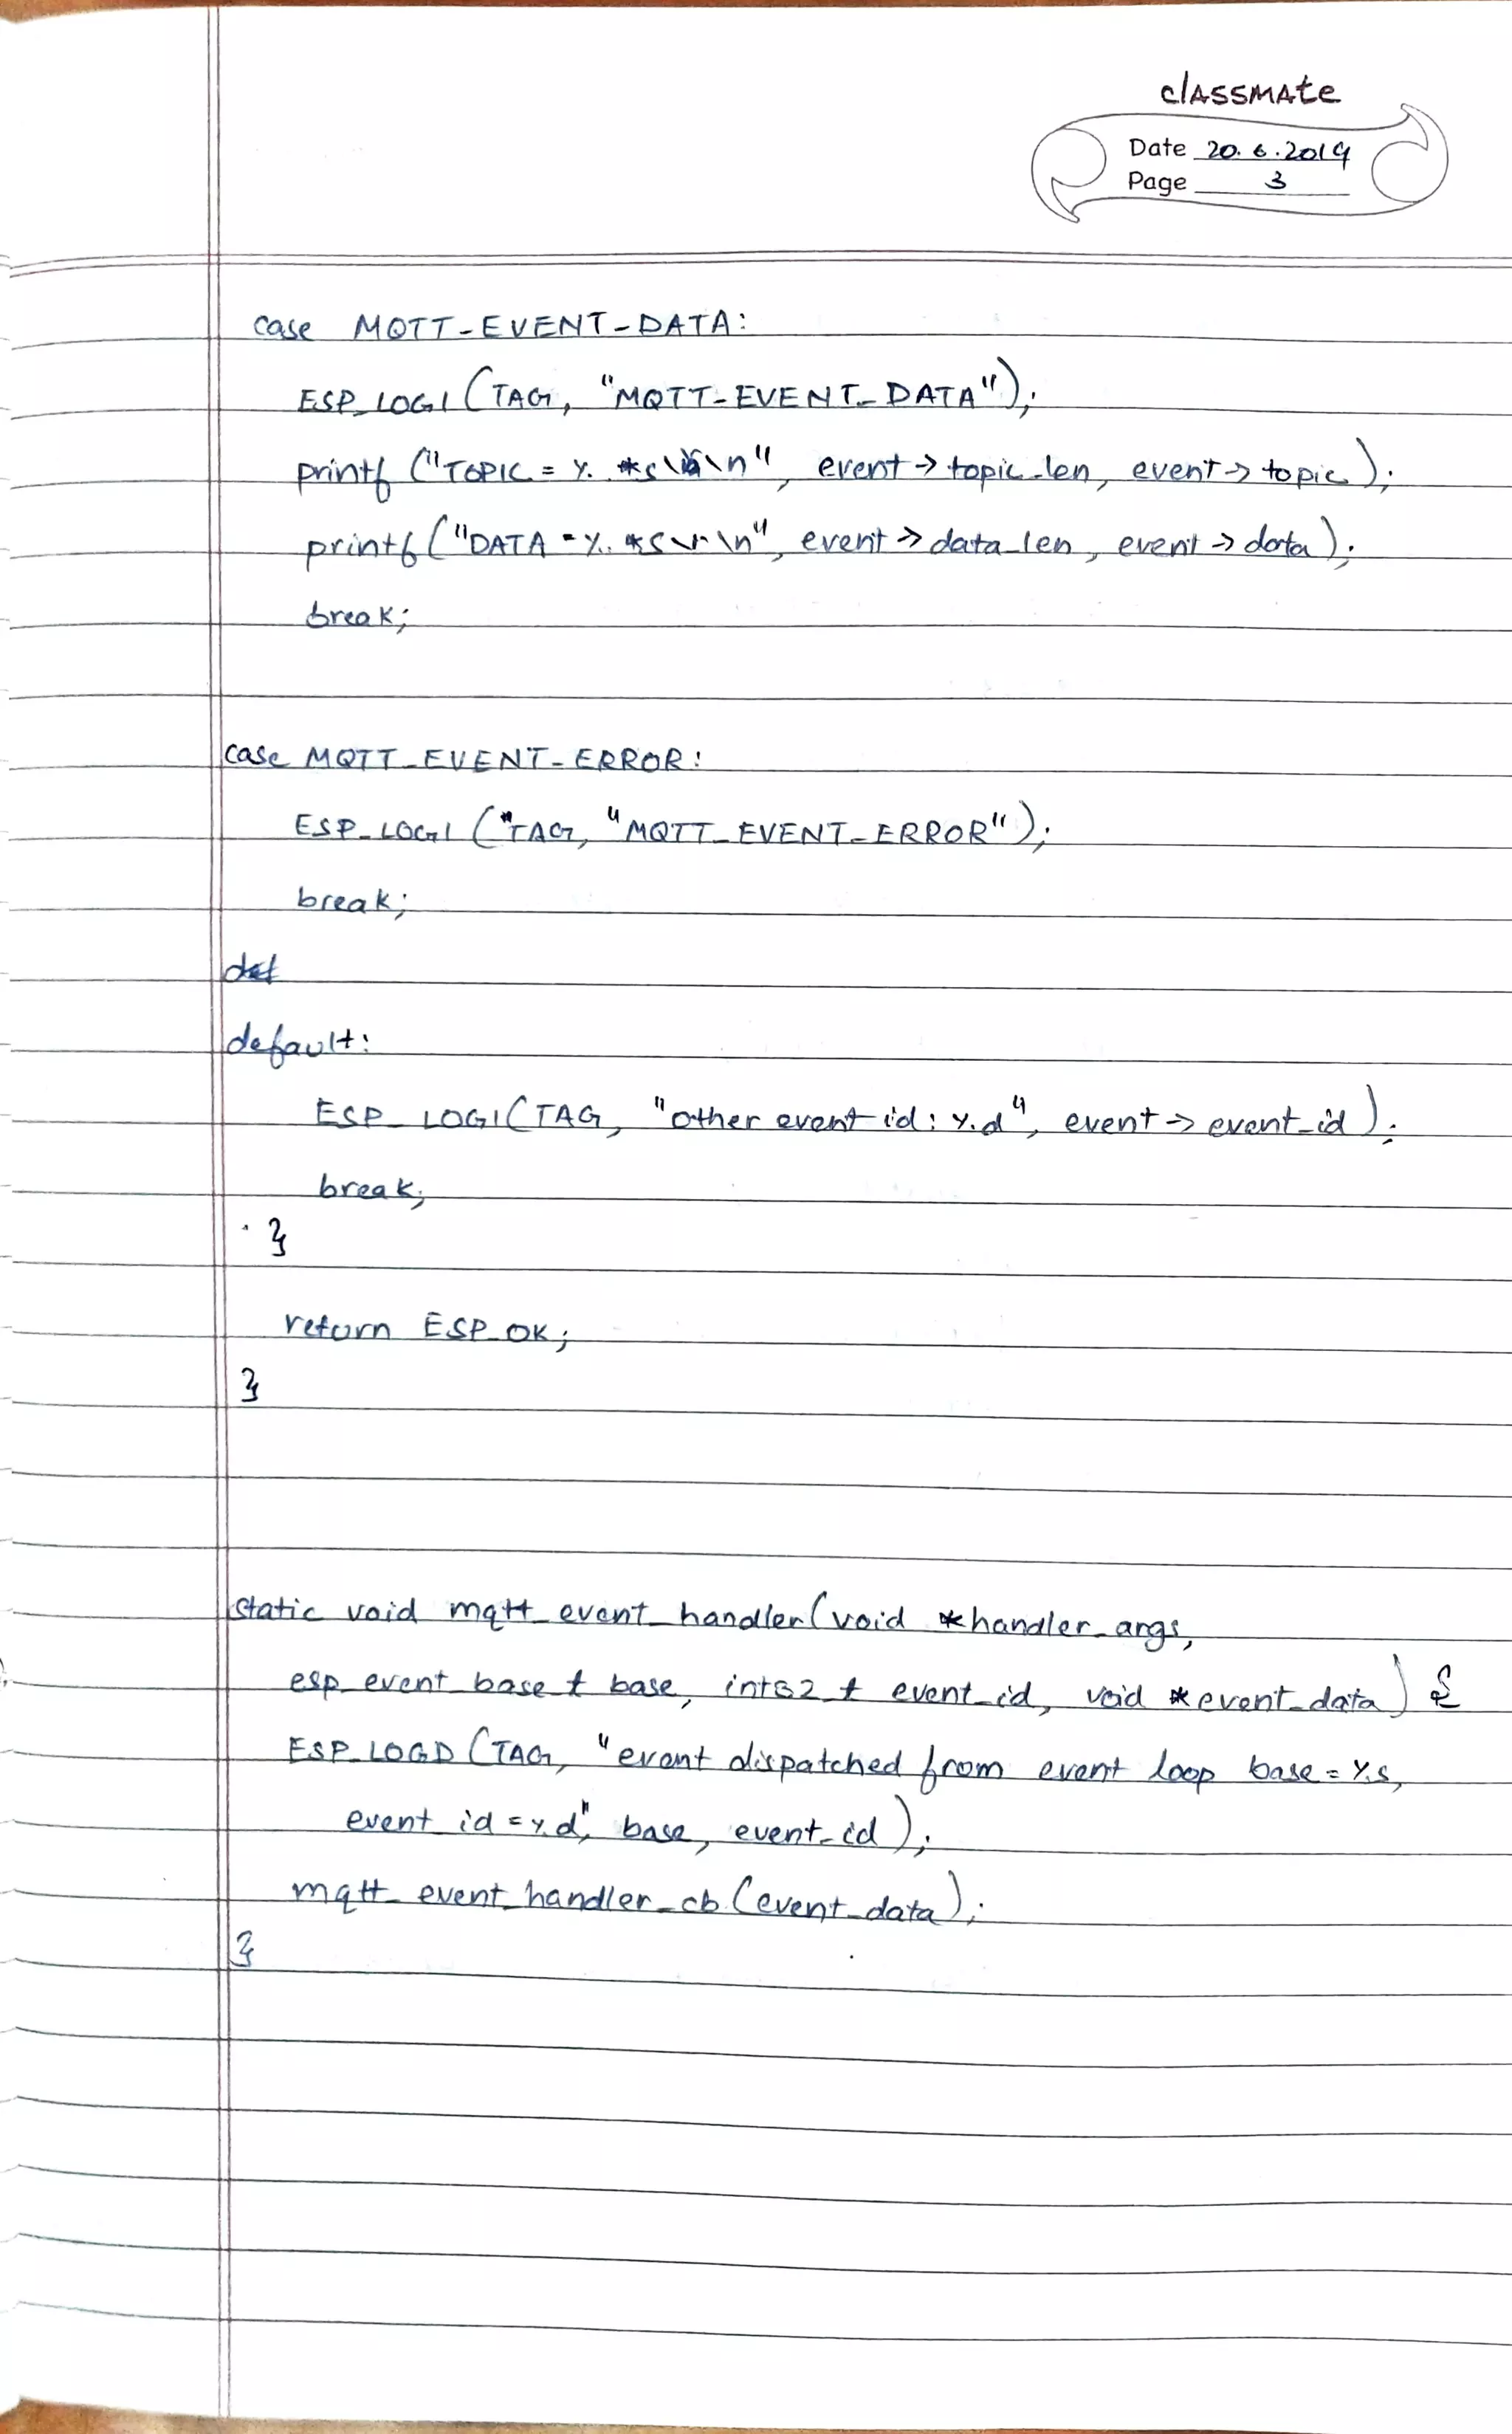 classmate
Date 20.6.2019
Page 3
case MQTT_EVENT_DATA:
ESP_LOGI (TAG, "MQTT_EVENT_DATA");
printf ("TOPIC = %. *s\r\n", event -> topic_len, event -> topic);
printf ("DATA = %. *s\r\n", event -> data_len, event -> data);
break;
case MQTT_EVENT_ERROR:
ESP_LOGI (TAG, "MQTT_EVENT_ERROR");
break;
def
default:
ESP_LOGI (TAG, "other event id: %d", event -> event_id);
break;
}
return ESP_OK;
}
static void mqtt_event_handler (void *handler_args,
esp_event_base_t base, int32_t event_id, void *event_data) {
ESP_LOGD (TAG, "event dispatched from event loop base = %s,
event_id = %d", base, event_id);
mqtt_event_handler_cb (event_data);
}